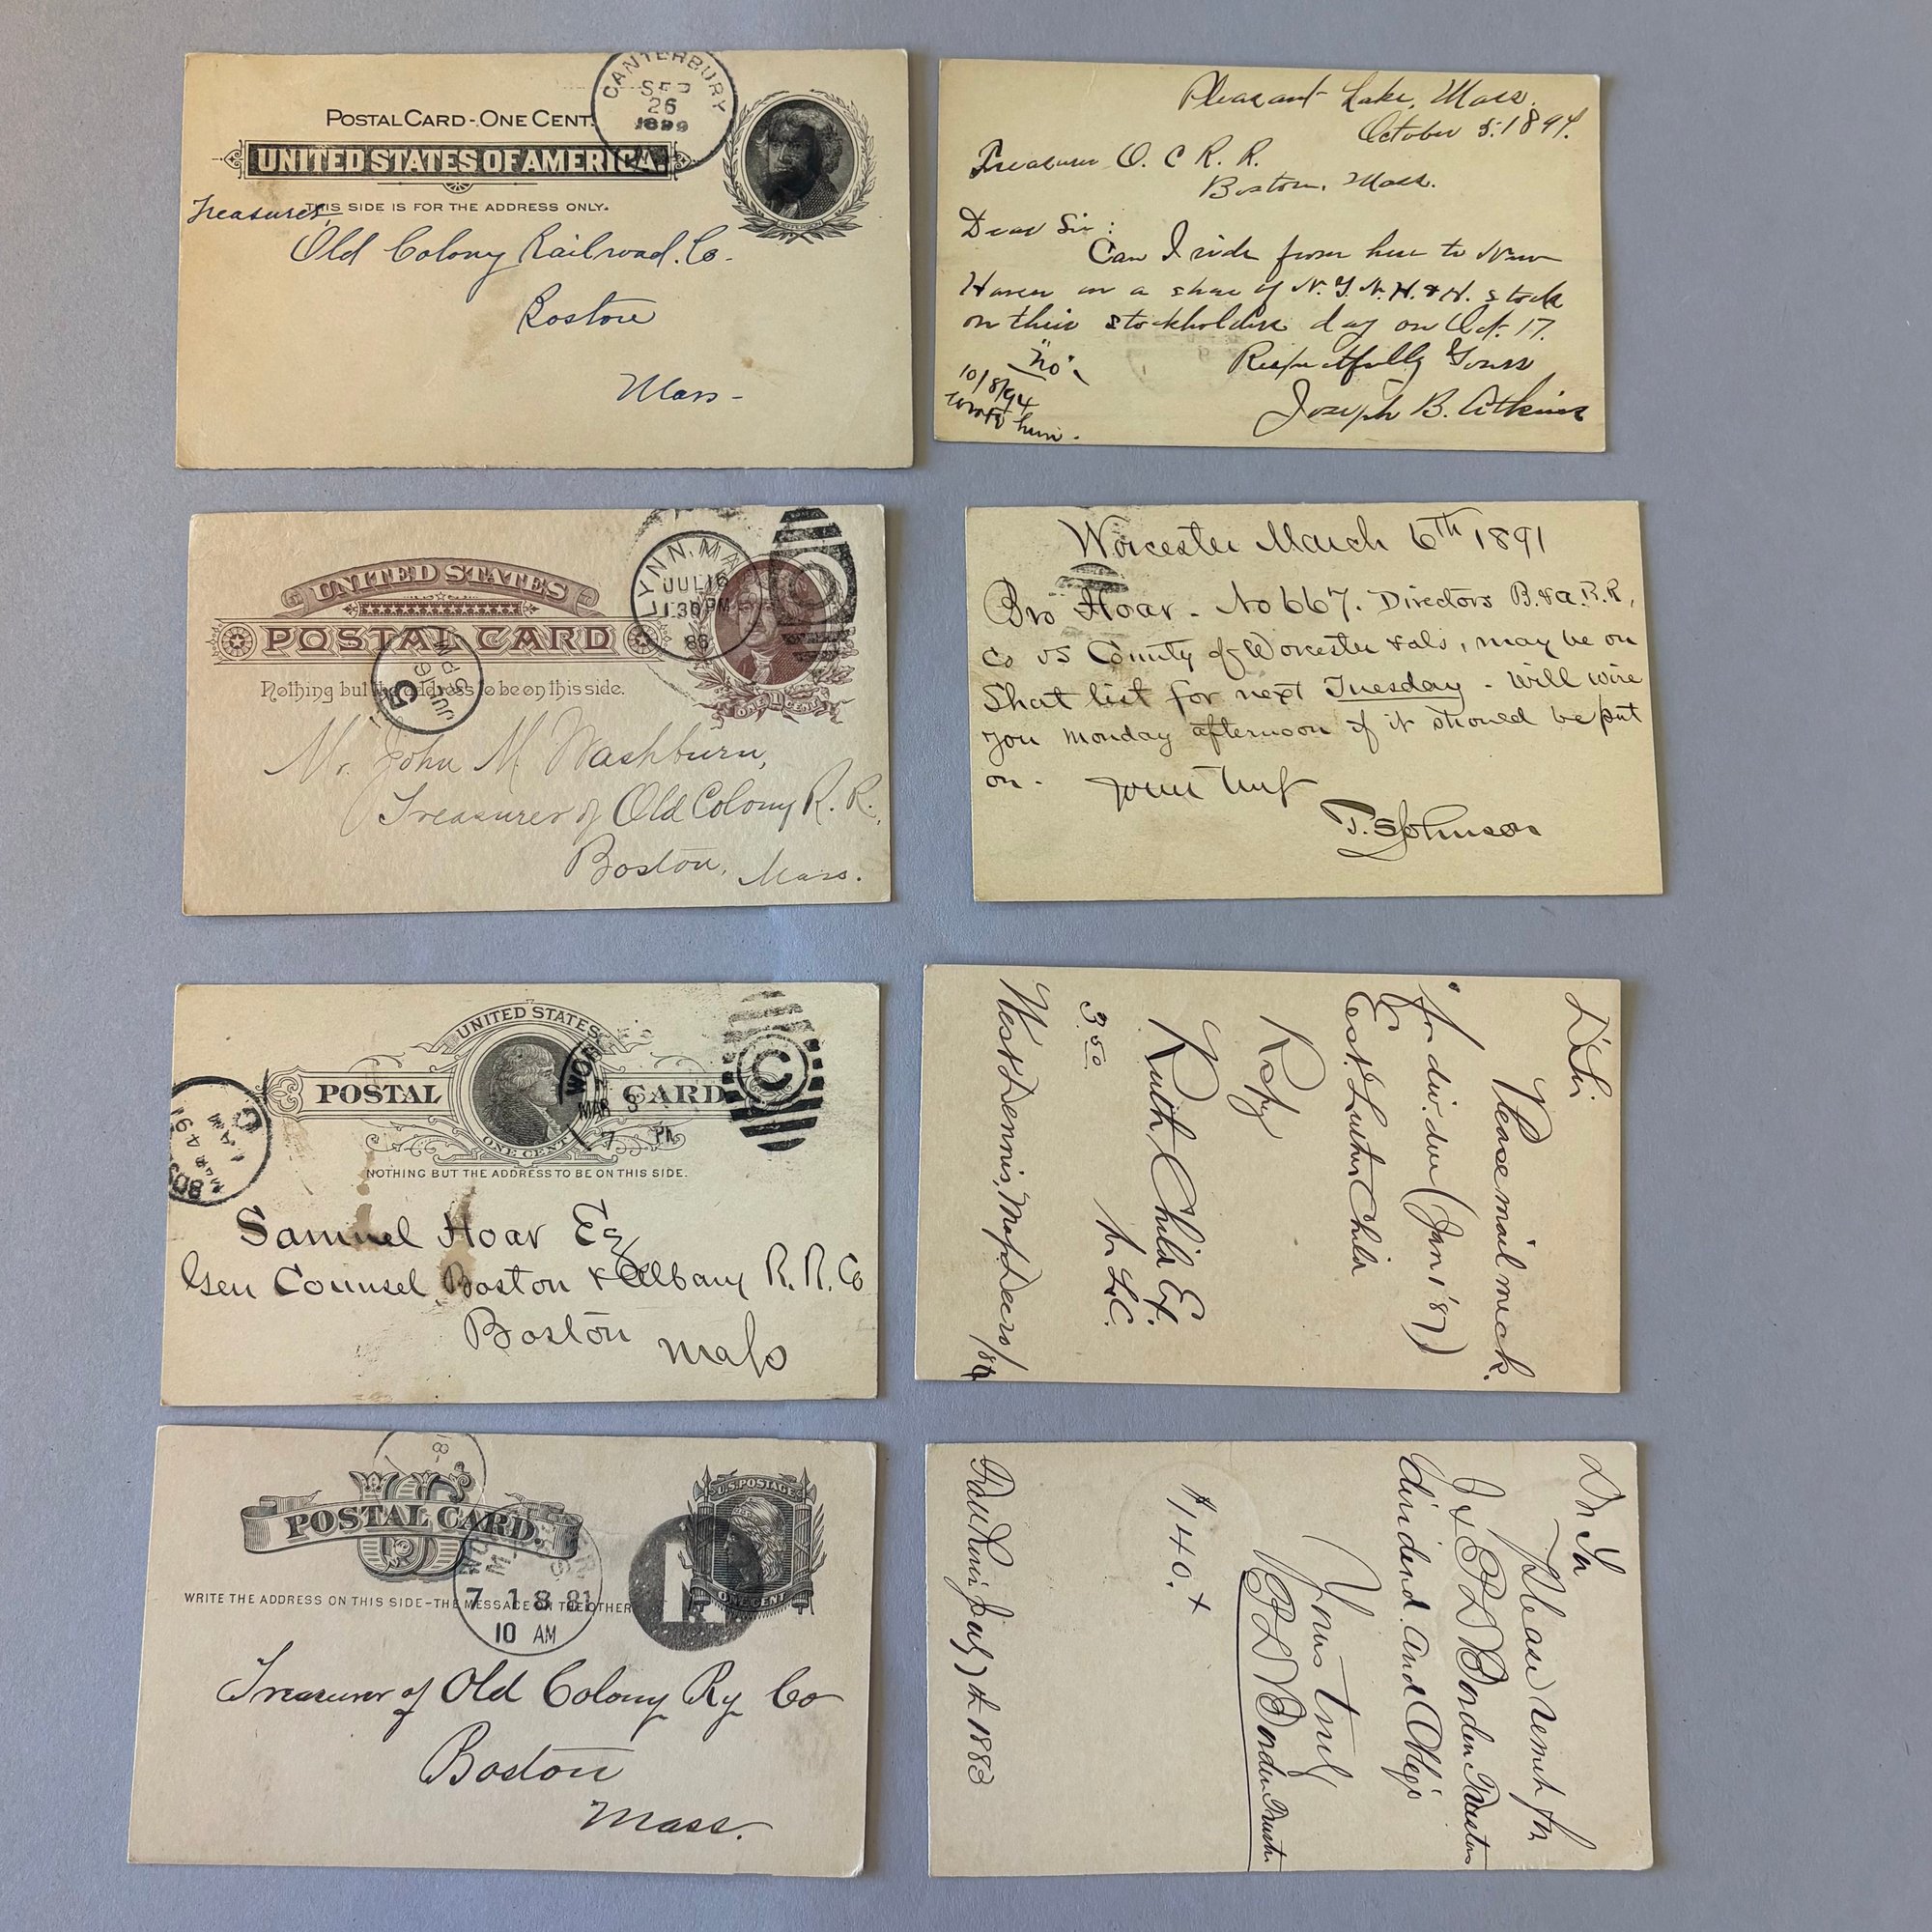 CANTERBURY
SEP
26
1899
POSTAL CARD - ONE CENT.
UNITED STATES OF AMERICA.
THIS SIDE IS FOR THE ADDRESS ONLY.
JEFFERSON
Treasurer,
Old Colony Railroad. Co.
Boston
Mass
Pleasant Lake, Mass.
October 5, 1894.
Treasurer O. C R. R.
Boston, Mass.
Dear Sir:
Can I ride from here to New
Haven on a share of N. Y. N. H. & H. stock
on their stockholders day on Oct. 17.
Respectfully Yours
Joseph B. Atkins
"No".
10/8/94
wrote him.
LYNN, MA
JUL 16
1 30 PM
86
UNITED STATES
POSTAL CARD
Nothing but the address to be on this side.
ONE CENT
JUL 16
5 PM
5
Mr. John M Washburn,
Treasurer of Old Colony R. R.,
Boston, Mass.
Worcester March 6th 1891
Bro Hoar - No 667. Directors B. & A. R. R,
Co vs County of Worcester & als, may be on
Short list for next Tuesday - Will wire
you Monday afternoon if it should be put
on - Yours Truly
T. S Johnson
UNITED STATES
POSTAL CARD
ONE CENT
NOTHING BUT THE ADDRESS TO BE ON THIS SIDE.
WOR
MAR
7 PM
C
MAR
4 91
AM
BOS
Samuel Hoar Esq
Gen Counsel, Boston & Albany R. R. Co
Boston Mass
D Sir
Please mail me ck.
for div. due (Jan 1 '87)
Est. Luther Child
Resp'y
Ruth Child Ex.
Pr L. C.
3.50
West Dennis, Mass.
POSTAL CARD.
U.S. POSTAGE
ONE CENT
WRITE THE ADDRESS ON THIS SIDE - THE MESSAGE ON THE OTHER
7 18 81
10 AM
Treasurer of Old Colony Ry Co
Boston
Mass.
Dr Sir
Please remit for
Borden Trustees
dividend and Oblige
Yours truly
Borden Trustee
$140.
Fall River July 7th 1883